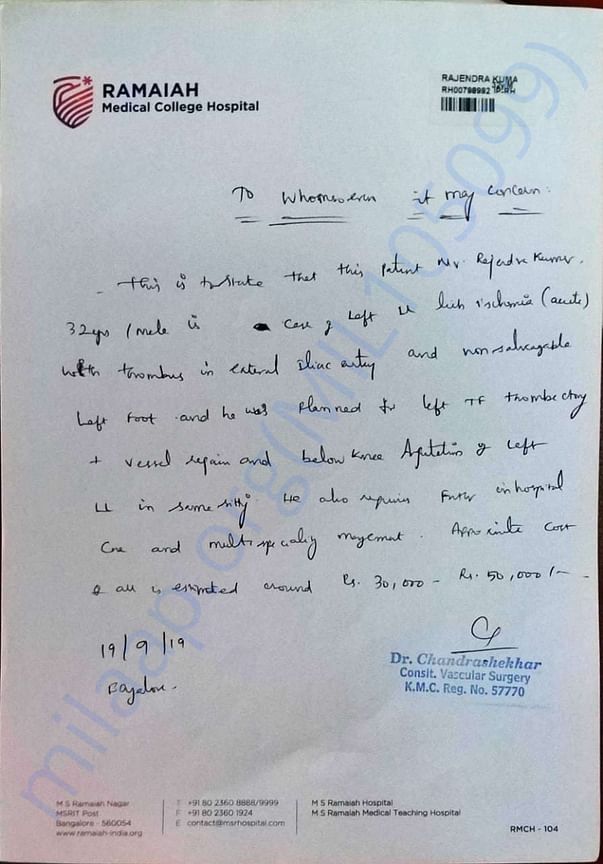 RAMAIAH
Medical College Hospital
RAJENDRA KUMA
RH00798992
To Whomsoever it may concern:
This is to state that this patient Mr. Rajendra Kumar,
32yrs / Male is case of Left LL limb ischemia (acute)
with thrombus in external iliac artery and non salvagable
Left foot and he was planned for left TF thrombectomy
+ vessel repair and below knee of Left
LL in same He also requires in hospital
Care and multispeciality Cost
of all is estimated around Rs. 30,000 - Rs. 50,000/-
19/9/19
Dr. Chandrashekhar
Conslt. Vascular Surgery
K.M.C. Reg. No. 57770
M S Ramaiah Nagar
MSRIT Post
Bangalore - 560054
www.ramaiah-india.org
T +91 80 2360 8888/9999
F +91 80 2360 1924
E contact@msrhospital.com
M S Ramaiah Hospital
M S Ramaiah Medical Teaching Hospital
RMCH - 104
milaap.org(MIL105099)